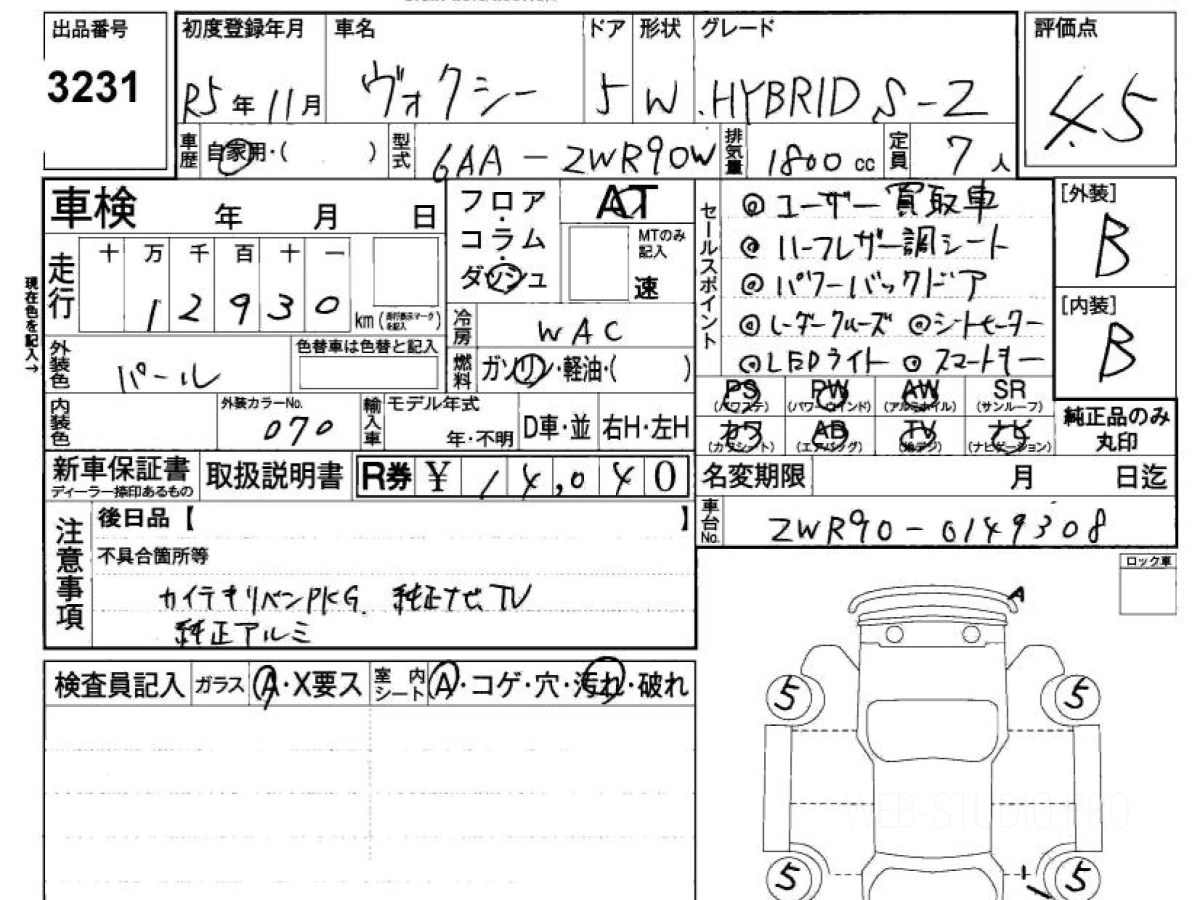 出品番号
3231
初度登録年月 車名 ドア 形状 グレード 評価点
R5年11月 ヴォクシー 5 W .HYBRID S-Z 4.5
車歴 自家用・( ) 型式 6AA-ZWR90W 排気量 1800 cc 定員 7人
車検 年 月 日
フロア・コラム・ダッシュ
AT
MTのみ記入
速
セールスポイント
◎ユーザー買取車
◎ハーフレザー調シート
◎パワーバックドア
◎レーダークルーズ ◎シートヒーター
◎LEDライト ◎スマートキー
[外装]
B
[内装]
B
現在色を記入→
走行 十 万 千 百 十 一
1 2 9 3 0 km (走行表示マークを記入)
冷房 WAC
外装色 パール
色替車は色替と記入
燃料 ガソリン・軽油・( )
PS (パワステ) PW (パワーウインド) AW (アルミホイル) SR (サンルーフ)
カワ (カワシート) AB (エアバッグ) TV (地デジ) ナビ (ナビゲーション)
純正品のみ丸印
内装色
外装カラーNo. 070
輸入車 モデル年式 年・不明 D車・並 右H・左H
新車保証書 ディーラー捺印あるもの
取扱説明書
R券 ¥ 14,040
名変期限 月 日迄
車台No. ZWR90-0149308
注意事項
後日品【 】
不具合箇所等
カイテキリベンPKG. 純正ナビ、TV
純正アルミ
ロック車
A
検査員記入 ガラス A・X要ス 室内シート A・コゲ・穴・汚れ・破れ
5 5
WEB-STUDIO.PRO
5 5